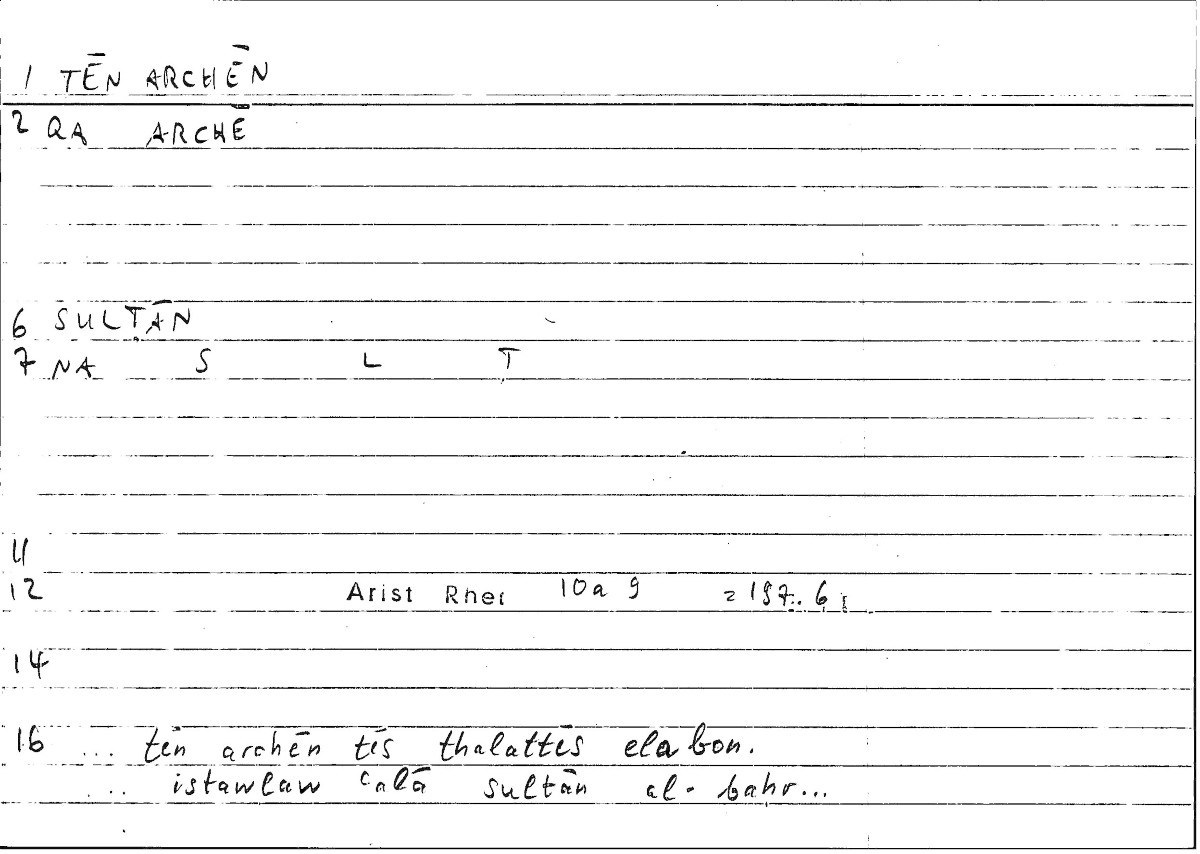 1 TĒN ARCHĒN
2 QA ARCHĒ
6 SULṬĀN
7 NA S L Ṭ
11
12 Arist Rhet 10a 9 = 197.. 6
14
16 ... tēn archēn tēs thalattēs elabon.
.. istawlaw ʿalā sultān al-bahr...